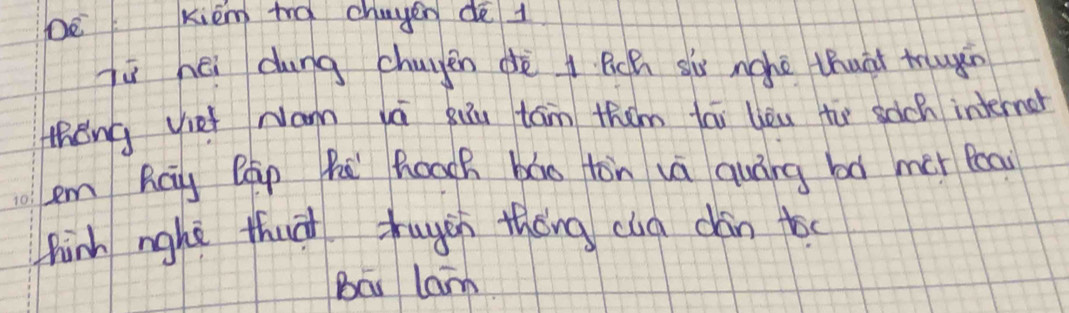 Đề: Kiểm tra chuyên đề 1
Từ nội dung chuyên đề 1 lịch sử nghệ thuật truyền
thống Việt Nam và sưu tầm thêm tài liệu từ sách internet
em hãy lập kế hoạch bảo tồn và quảng bá một loại
hình nghệ thuật truyền thống của dân tộc
Bài làm